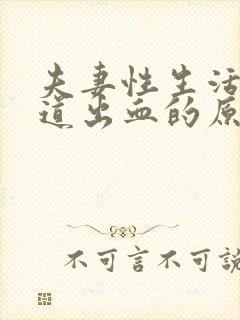 夫妻性生活
道出血的原
不可言不可說